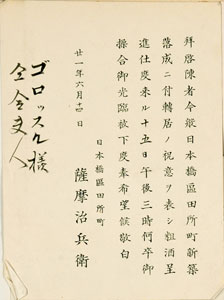 拝啓陳者今般日本橋區田所町新築
落成ニ付轉居ノ祝意ヲ表シ粗酒呈
進仕度来ル十五日午後三時何卒御
操合御光臨被下度奉希望候敬白
日本橋區田所町
廿一年六月十一日
薩摩治兵衛
ゴロッスル様
仝令夫人